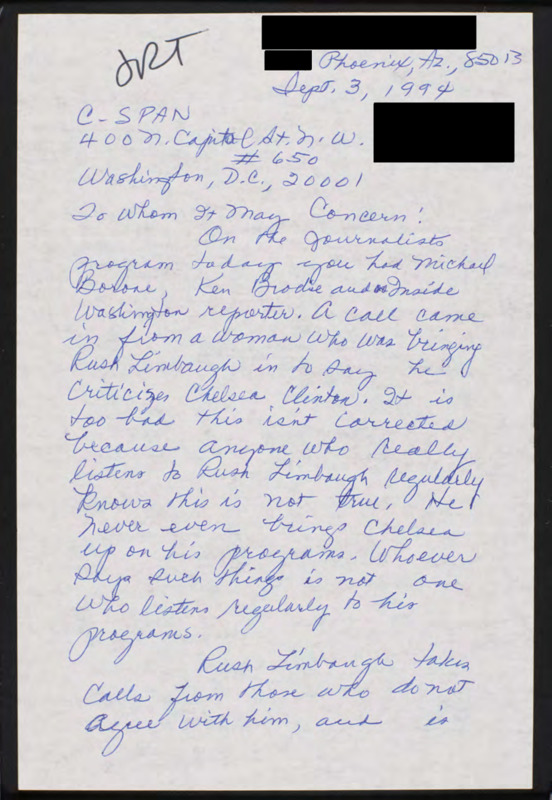 JRT
Phoenix, Az., 85013
Sept. 3, 1994
C-SPAN
400 N. Capitol St. N.W.
# 650
Washington, D.C., 20001
To Whom It May Concern!
On the Journalists
program today you had Michael
Barone, Ken Brodie and an Inside
Washington reporter. A call came
in from a woman who was bringing
Rush Limbaugh in to say he
criticizes Chelsea Clinton. It is
too bad this isn't corrected
because anyone who really
listens to Rush Limbaugh regularly
knows this is not true. He
never even brings Chelsea
up on his programs. Whoever
says such things is not one
who listens regularly to his
programs.
Rush Limbaugh takes
calls from those who do not
agree with him, and is